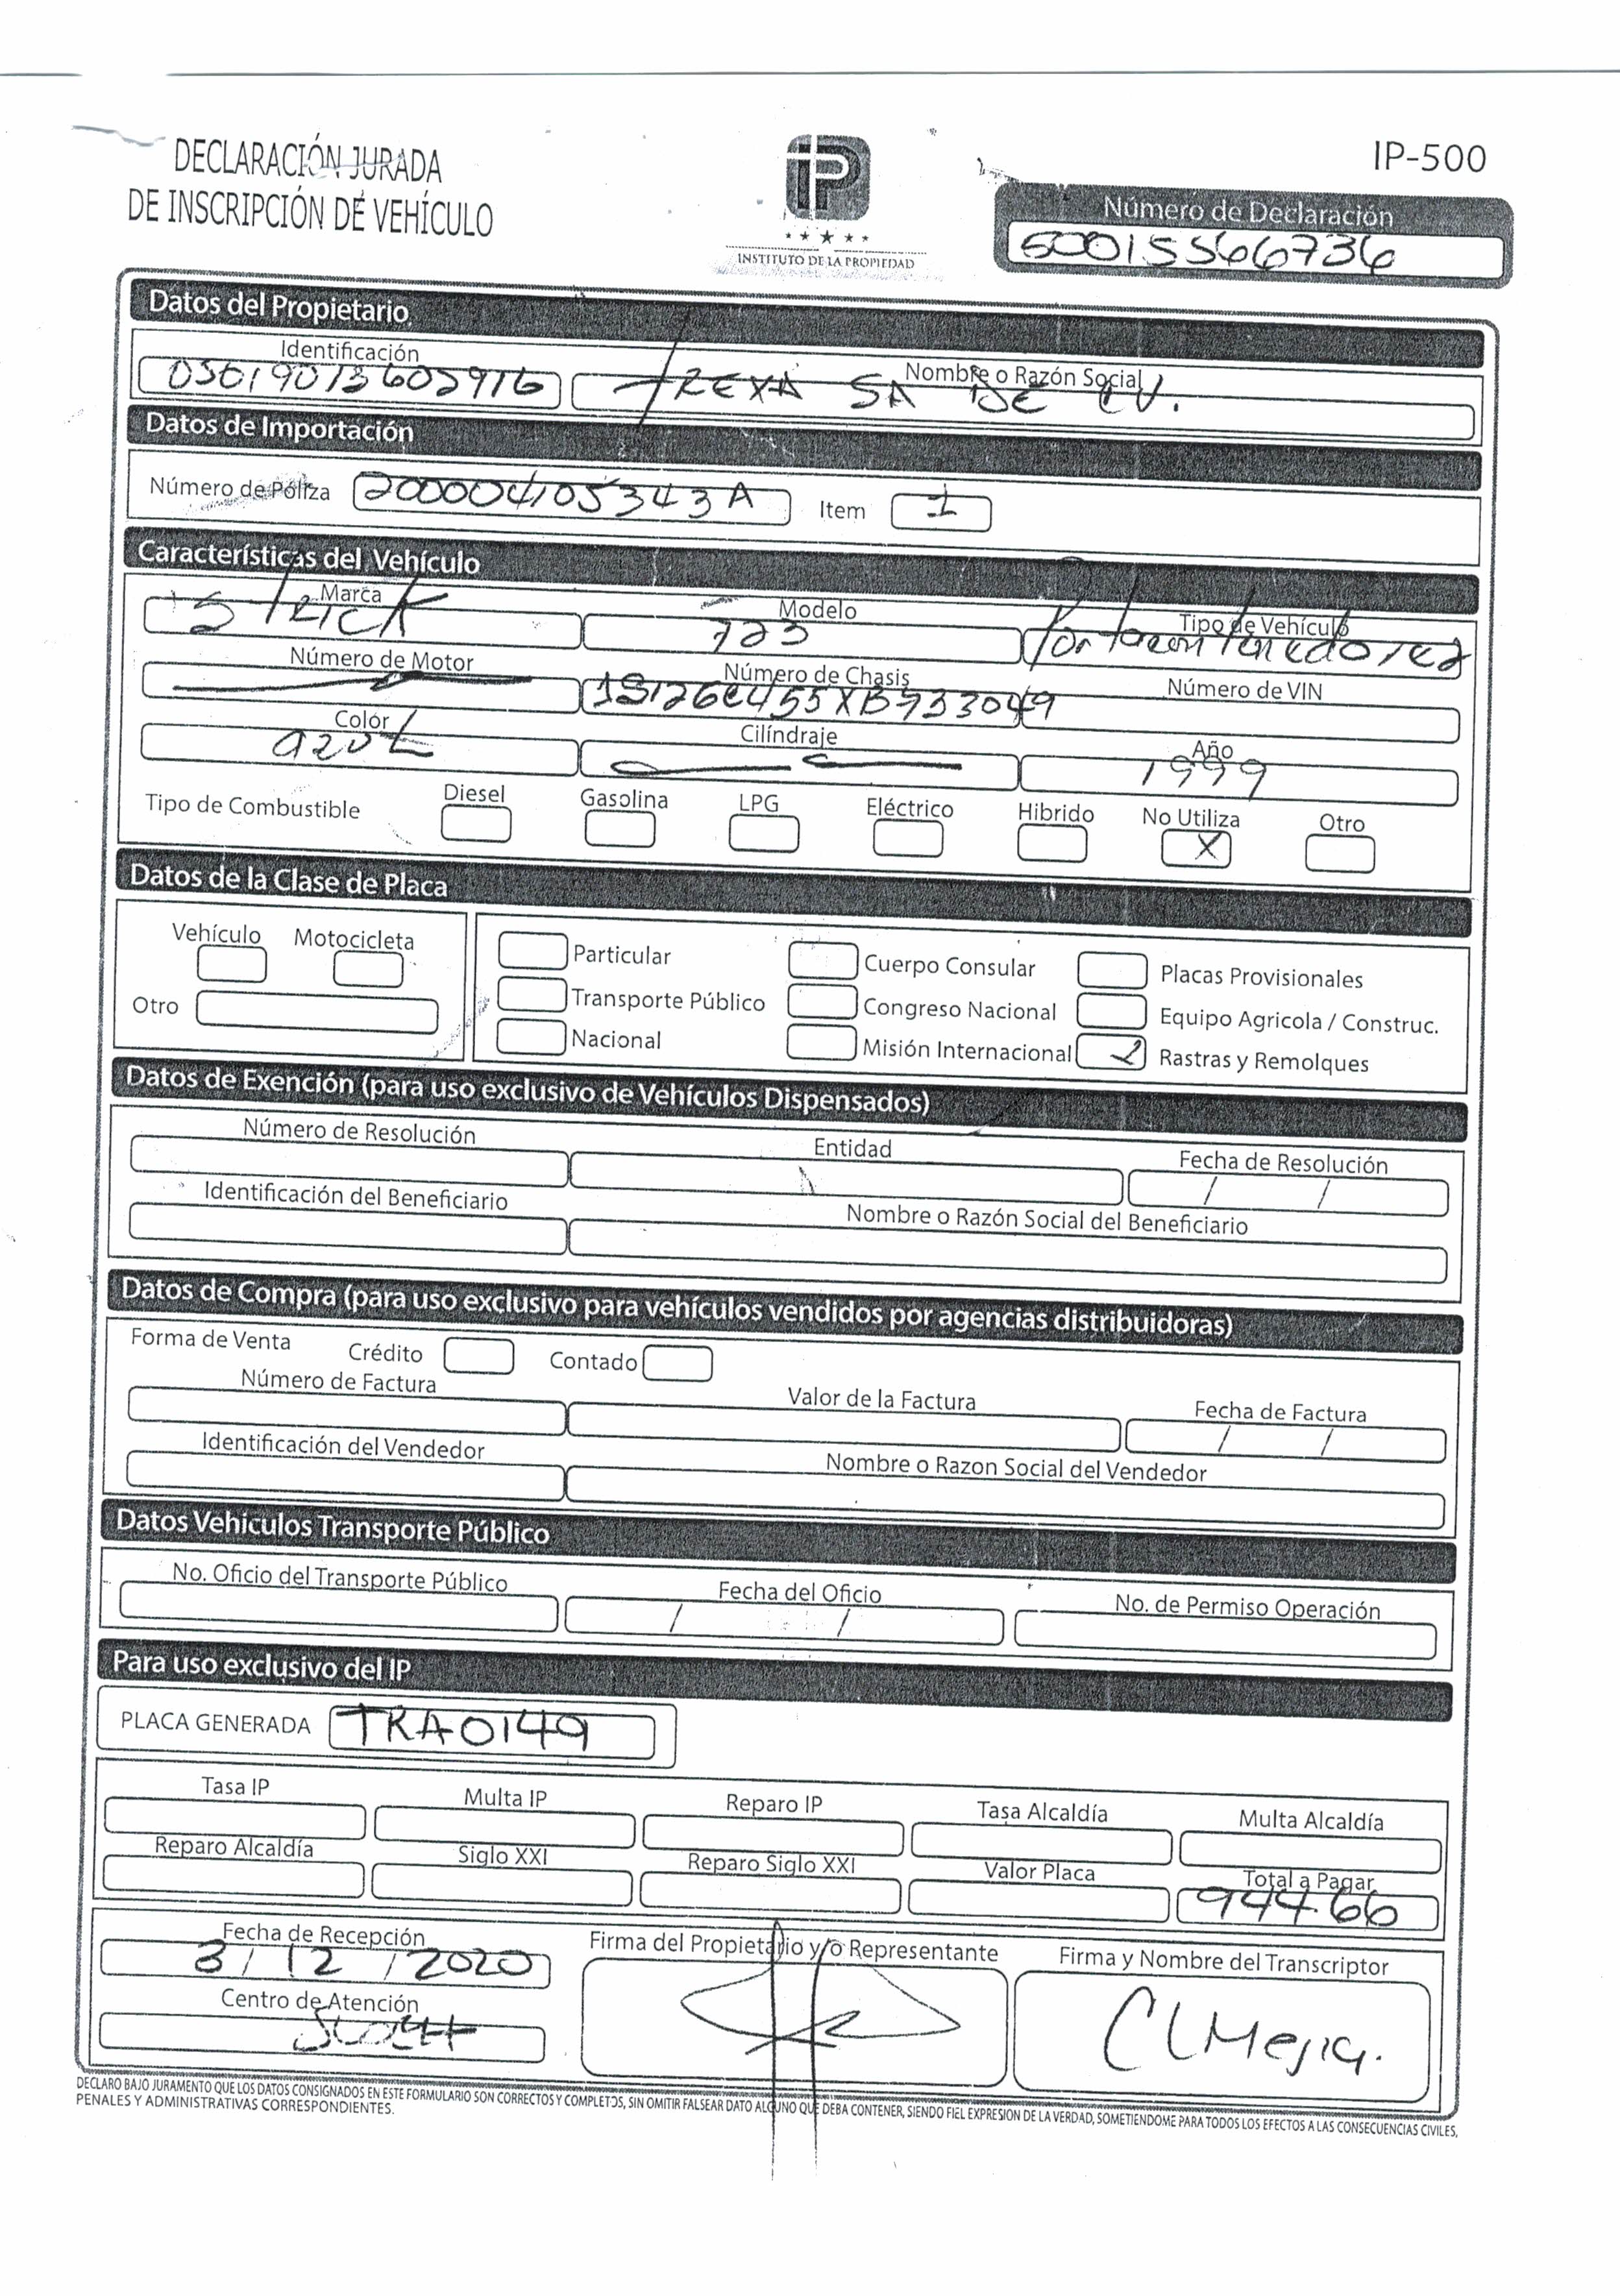 DECLARACIÓN JURADA
DE INSCRIPCIÓN DE VEHÍCULO
IP
INSTITUTO DE LA PROPIEDAD
IP-500
Número de Declaración
50015566736
Datos del Propietario
Identificación Nombre o Razón Social
TREXA SA DE CV.
Datos de Importación
Número de Póliza 200004105343A Item 1
Características del Vehículo
Marca Modelo Tipo de Vehículo
Strick 723
Número de Motor Número de Chasis Número de VIN
Color Cilíndraje Año
azul 1999
Tipo de Combustible Diesel Gasolina LPG Eléctrico Hibrido No Utiliza Otro
X
Datos de la Clase de Placa
Vehículo Motocicleta
Otro
Particular Cuerpo Consular Placas Provisionales
Transporte Público Congreso Nacional Equipo Agricola / Construc.
Nacional Misión Internacional Rastras y Remolques
Datos de Exención (para uso exclusivo de Vehículos Dispensados)
Número de Resolución Entidad Fecha de Resolución
/ /
Identificación del Beneficiario Nombre o Razón Social del Beneficiario
Datos de Compra (para uso exclusivo para vehículos vendidos por agencias distribuidoras)
Forma de Venta Crédito Contado
Número de Factura Valor de la Factura Fecha de Factura
/ /
Identificación del Vendedor Nombre o Razon Social del Vendedor
Datos Vehiculos Transporte Público
No. Oficio del Transporte Público Fecha del Oficio No. de Permiso Operación
/ /
Para uso exclusivo del IP
PLACA GENERADA TRA0149
Tasa IP Multa IP Reparo IP Tasa Alcaldía Multa Alcaldía
Reparo Alcaldía Siglo XXI Reparo Siglo XXI Valor Placa Total a Pagar
944.66
Fecha de Recepción Firma del Propietario y/o Representante Firma y Nombre del Transcriptor
3/ 12 /2020
Centro de Atención
CLMejia.
DECLARO BAJO JURAMENTO QUE LOS DATOS CONSIGNADOS EN ESTE FORMULARIO SON CORRECTOS Y COMPLETOS, SIN OMITIR FALSEAR DATO ALGUNO QUE DEBA CONTENER, SIENDO FIEL EXPRESION DE LA VERDAD, SOMETIENDOME PARA TODOS LOS EFECTOS A LAS CONSECUENCIAS CIVILES,
PENALES Y ADMINISTRATIVAS CORRESPONDIENTES.